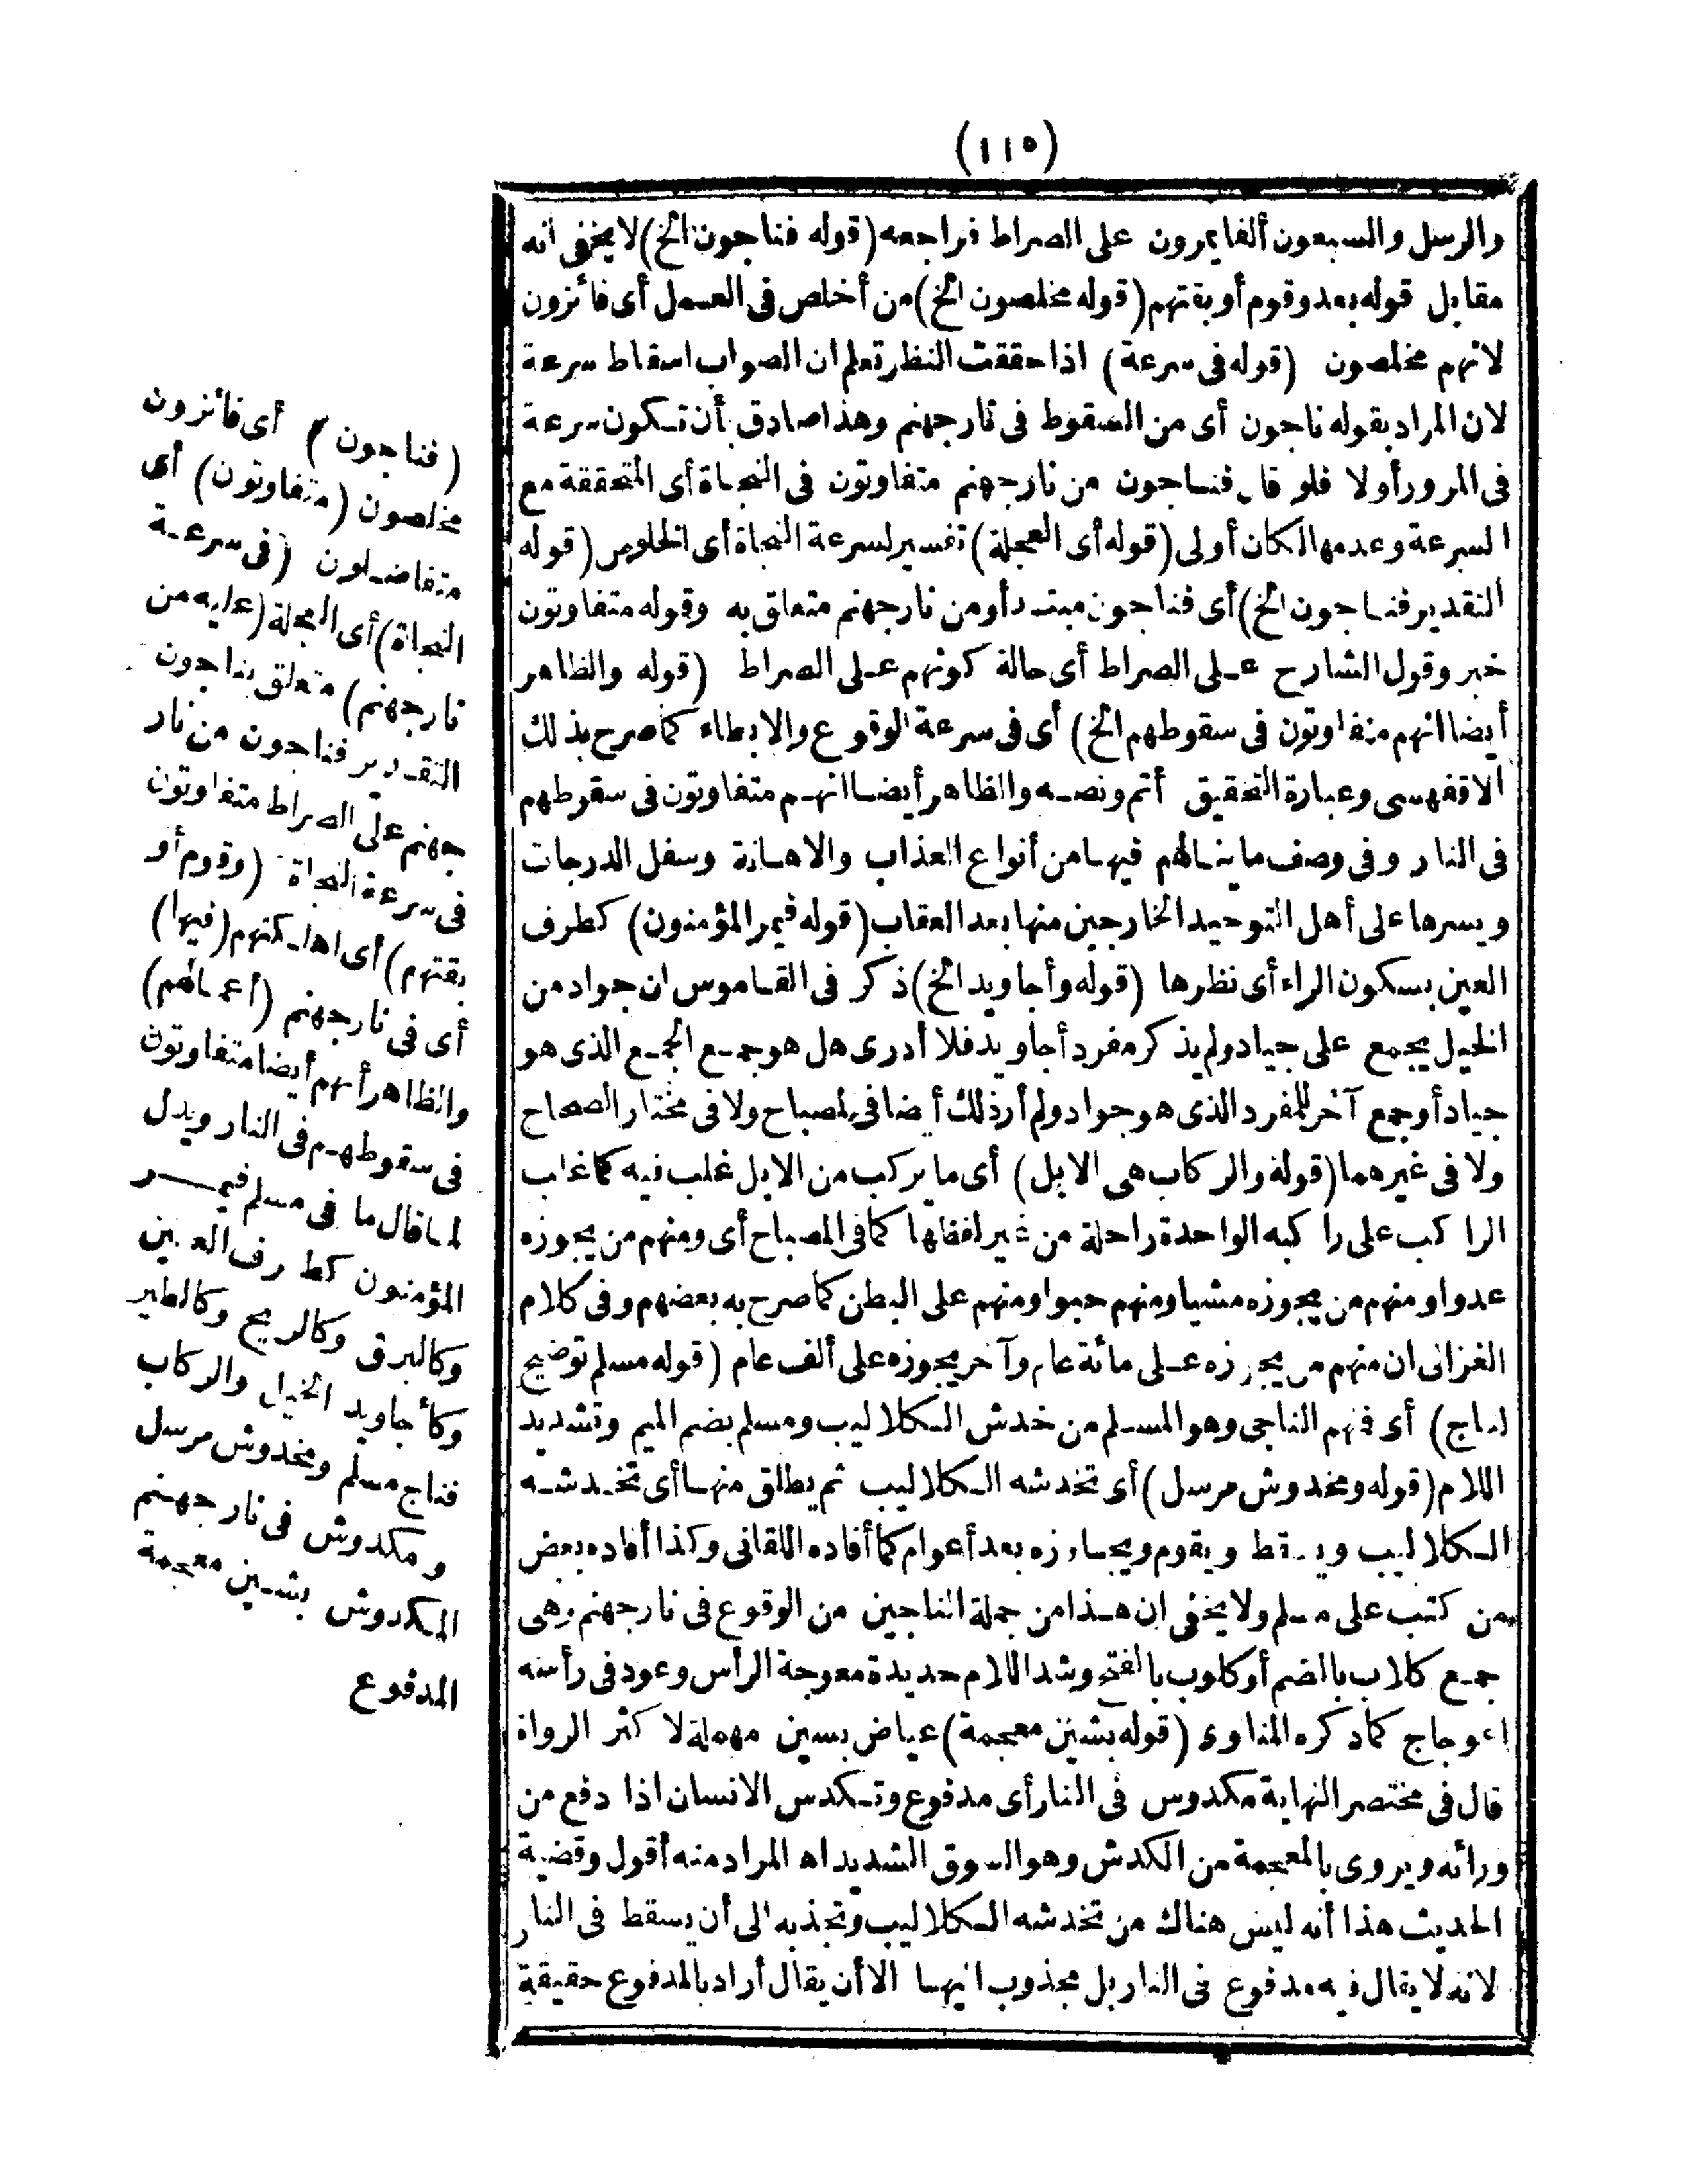 (١١٥)
والرسل والسبعون ألفا يمرون على الصراط فراجعه (قوله فناجون الخ) لا يخفى انه
مقابل قوله بعد وقوم أوبقتهم (قوله مخلصون الخ) من أخلص فى العمل أى فائزون
لانهم مخلصون (قوله فى سرعة) اذا حققت النظر تعلم ان الصواب اسقاط سرعة
لان المراد بقوله ناجون أى من السقوط فى نار جهنم وهذا صادق بأن تكون سرعة
فى المرور أولا فلو قال فناجون من نار جهنم متفاوتون فى النجاة أى المتحققة مع
السرعة وعدمها لكان أولى (قوله أى العجلة) تفسير لسرعة النجاة أى الخلوص (قوله
التقدير فناجون الخ) أى فناجون مبتدأ ومن نار جهنم متعلق به وقوله متفاوتون
خبر وقول الشارح على الصراط أى حالة كونهم على الصراط (قوله والظاهر
أيضا انهم متفاوتون فى سقوطهم الخ) أى فى سرعة الوقوع والابطاء كما صرح بذلك
الاقفهسى وعبارة التحقيق أتم ونصه والظاهر أيضا انهم متفاوتون فى سقوطهم
فى النار وفى وصف ما ينالهم فيها من أنواع العذاب والاهانة وسفل الدرجات
ويسرها على أهل التوحيد الخارجين منها بعد العقاب (قوله فيمر المؤمنون) كطرف
العين بسكون الراء أى نظرها (قوله وأجاويد الخ) ذكر فى القاموس ان جواد من
الخيل يجمع على جياد ولم يذكر مفرد أجاويد فلا أدرى هل هو جمع الجمع الذى هو
جياد أو جمع آخر للمفرد الذى هو جواد ولم أر ذلك أيضا فى المصباح ولا فى مختار الصحاح
ولا فى غيرهما (قوله والركاب هى الابل) أى ما يركب من الابل غلب فيه كما غلب
الراكب على راكبه الواحدة راحلة من غير لفظها كما فى المصباح أى ومنهم من يجوزه
عدوا ومنهم من يجوزه مشيا ومنهم حبوا ومنهم على البطن كما صرح به بعضهم وفى كلام
الغزالى ان منهم من يجوزه على مائة عام وآخر يجوزه على ألف عام (قوله مسلم توضيح
لناج) أى فمنهم الناجى وهو المسلم من خدش الكلاليب ومسلم بضم الميم وتشديد
اللام (قوله ومخدوش مرسل) أى تخدشه الكلاليب ثم يطلق منها أى تخدشه
الكلاليب ويسقط ويقوم ويجاوزه بعد أعوام كما أفاده اللقانى وكذا أفاده بعض
من كتب على مسلم ولا يخفى ان هذا من جملة الناجين من الوقوع فى نار جهنم وهى
جمع كلاب بالضم أو كلوب بالفتح وشد اللام حديدة معوجة الرأس وعود فى رأسه
اعوجاج كما ذكره المناوى (قوله بشين معجمة) عياض بسين مهملة لا كثر الرواة
قال فى مختصر النهاية مكدوس فى النار أى مدفوع وتكدس الانسان اذا دفع من
ورائه ويروى بالمعجمة من الكدش وهو السوق الشديد اه المراد منه أقول وقضية
الحديث هذا أنه ليس هناك من تخدشه الكلاليب وتجذبه الى أن يسقط فى النار
لانه لا يقال فيه مدفوع فى النار بل مجذوب اليها الا أن يقال أراد بالمدفوع حقيقة
(فناجون) أى فائزون
مخلصون (متفاوتون) أى
متفاضلون (فى سرعة
النجاة) أى العجلة (عليه من
نار جهنم) متعلق بناجون
التقدير فناجون من نار
جهنم على الصراط متفاوتون
فى سرعة النجاة (وقوم أو
بقتهم) أى اهلكتهم (فيها)
أى فى نار جهنم (أعمالهم)
والظاهر أنهم أيضا متفاوتون
فى سقوطهم فى النار ويدل
لما قال ما فى مسلم فيمر
المؤمنون كطرف العين
وكالبرق وكالريح وكالطير
وكأجاويد الخيل والركاب
فناج مسلم ومخدوش مرسل
ومكدوش فى نار جهنم
المكدوش بشين معجمة
المدفوع